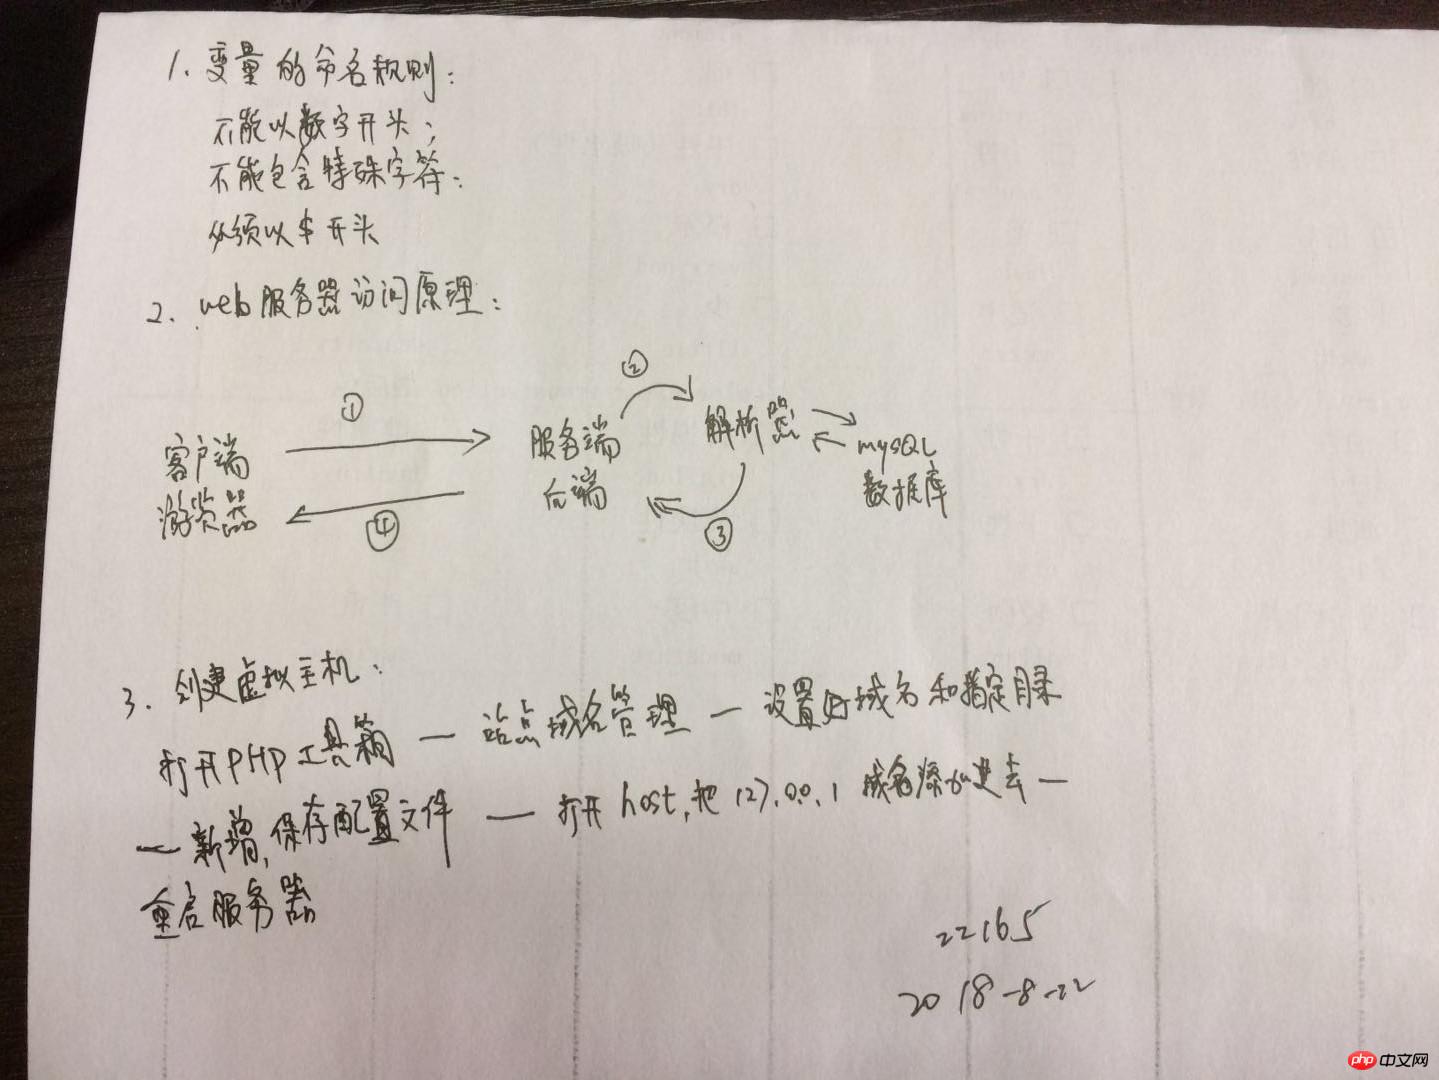 1. 变量的命名规则：
不能以数字开头；
不能包含特殊字符；
必须以$开头
2. web服务器访问原理：
②
①
客户端 服务端 解析器 mySQL
游览器 后端 数据库
④ ③
3. 创建虚拟主机：
打开PHP工具箱 — 站点域名管理 — 设置好域名和指定目录
— 新增，保存配置文件 — 打开host，把127.0.0.1 域名添加进去 —
重启服务器
22165
2018-8-22
php 中文网